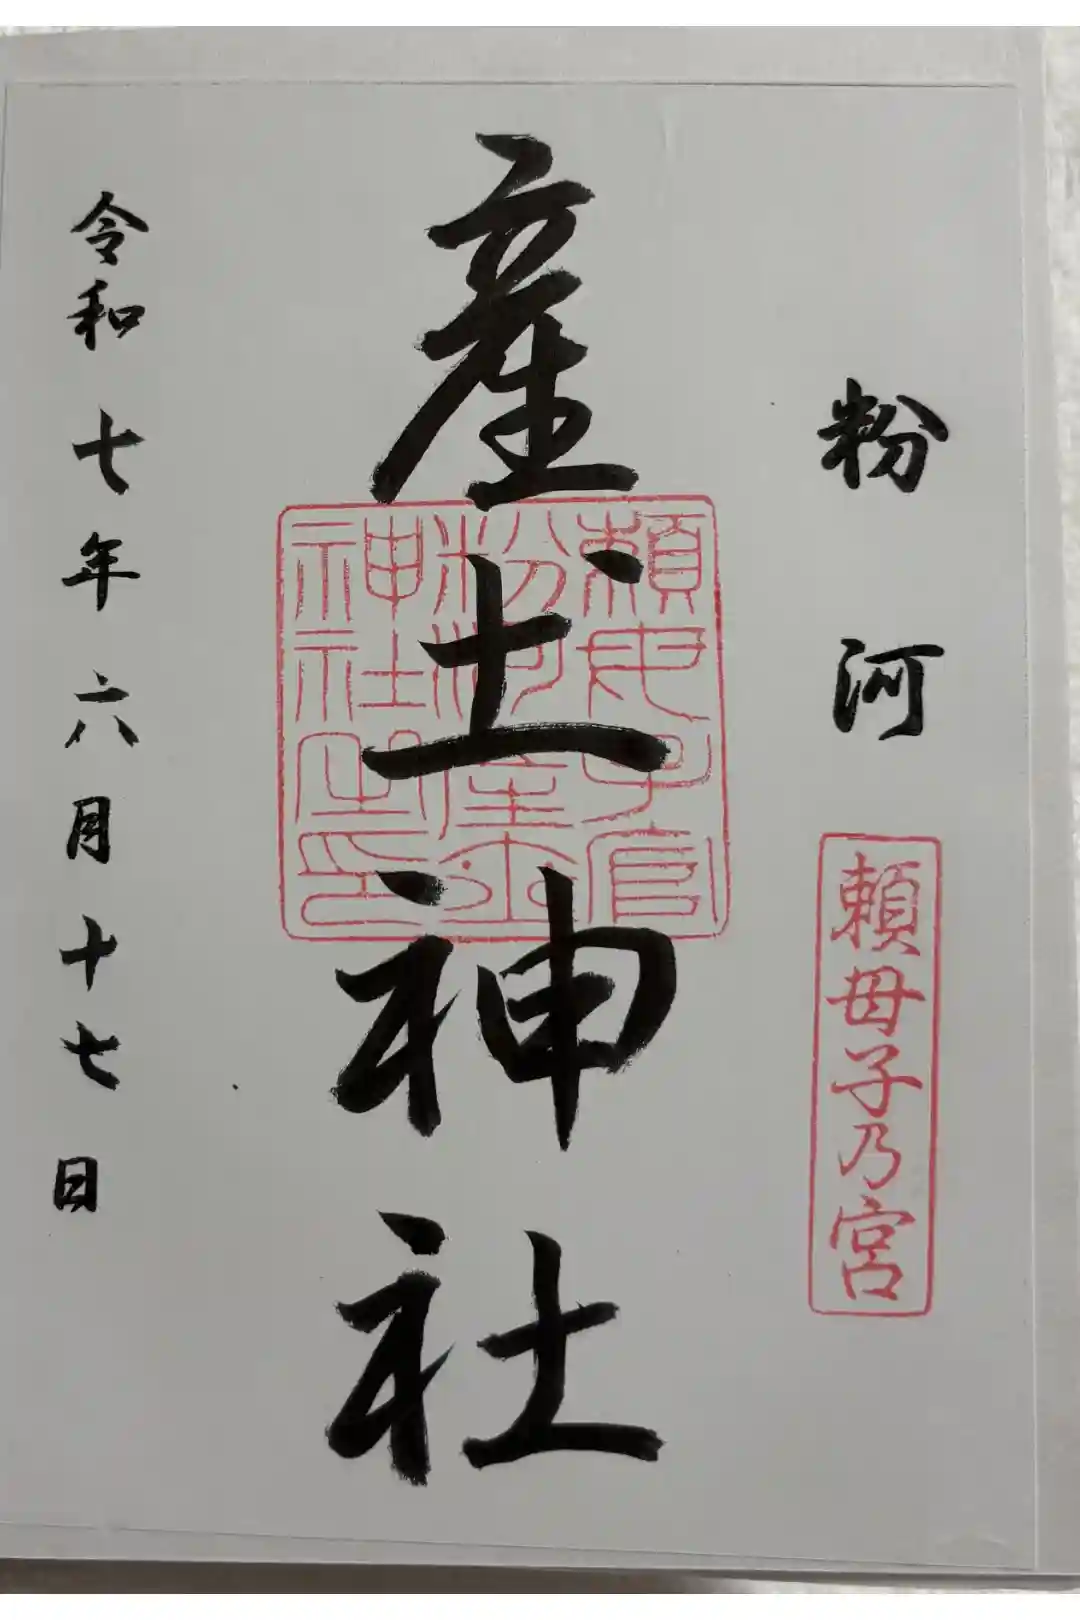 粉河
頼母子乃宮
産土神社
頼母子宮
粉河産土
神社之印
令和七年六月十七日